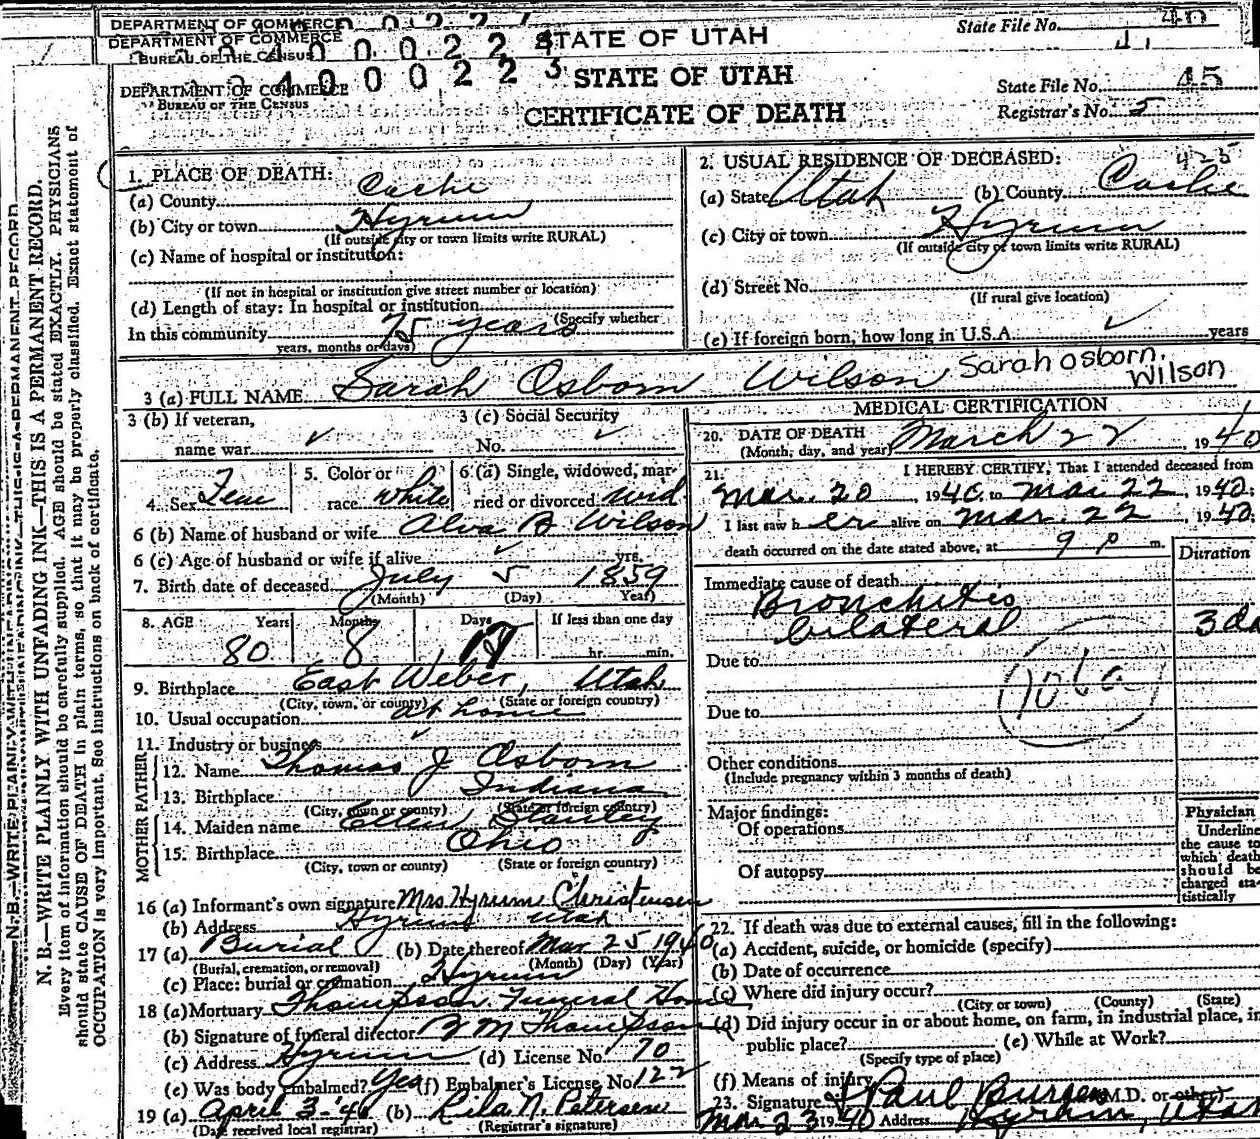 DEPARTMENT OF COMMERCE
State File No. 40
DEPARTMENT OF COMMERCE STATE OF UTAH
BUREAU OF THE CENSUS
STATE OF UTAH
DEPARTMENT OF COMMERCE
BUREAU OF THE CENSUS
State File No. 45
CERTIFICATE OF DEATH
Registrar's No. 5
1. PLACE OF DEATH:
(a) County Cache
(b) City or town Hyrum
(If outside city or town limits write RURAL)
(c) Name of hospital or institution:
(If not in hospital or institution give street number or location)
(d) Length of stay: In hospital or institution
(Specify whether
In this community 75 years
years, months or days)
2. USUAL RESIDENCE OF DECEASED: 425
(a) State Utah (b) County Cache
(c) City or town Hyrum
(If outside city or town limits write RURAL)
(d) Street No.
(If rural give location)
(e) If foreign born, how long in U.S.A. ✓ years
3 (a) FULL NAME Sarah Osborn Wilson Sarah Osborn Wilson
3 (b) If veteran,
name war ✓
3 (c) Social Security
No. ✓
4. Sex Fem
5. Color or
race white
6. (a) Single, widowed, mar-
ried or divorced wid
6 (b) Name of husband or wife Alva B Wilson
6 (c) Age of husband or wife if alive ✓ yrs.
7. Birth date of deceased July 5 1859
(Month) (Day) Year)
8. AGE Years Months Days If less than one day
80 8 17 hr. min.
9. Birthplace East Weber, Utah
(City, town, or county) (State or foreign country)
10. Usual occupation at home
11. Industry or business
FATHER
12. Name Thomas J Osborn
13. Birthplace Indiana
(City, town or county) (State or foreign country)
MOTHER
14. Maiden name Ellen Stanley
15. Birthplace Ohio
(City, town or county) (State or foreign country)
16 (a) Informant's own signature Mrs Hyrum Christensen
(b) Address Hyrum Utah
17 (a) Burial (b) Date thereof Mar 25 1940
(Burial, cremation, or removal) (Month) (Day) (Year)
(c) Place: burial or cremation Hyrum
18 (a) Mortuary Thompson Funeral Home
(b) Signature of funeral director M Thompson
(c) Address Hyrum (d) License No. 70
(e) Was body embalmed? Yes (f) Embalmer's License No. 122
19 (a) April 3-40 (b) Lila N. Petersen
(Date received local registrar) (Registrar's signature)
MEDICAL CERTIFICATION
20. DATE OF DEATH March 22, 1940
(Month, day, and year)
21. I HEREBY CERTIFY, That I attended deceased from
Mar. 20, 1940, to Mar 22, 1940;
I last saw her alive on Mar. 22, 1940;
death occurred on the date stated above, at 9 p m.
Duration
Immediate cause of death
Bronchitis
bilateral 3 da
Due to
106a
Due to
Other conditions
(Include pregnancy within 3 months of death)
Major findings:
Of operations
Of autopsy
Physician
Underline
the cause to
which death
should be
charged sta-
tistically
22. If death was due to external causes, fill in the following:
(a) Accident, suicide, or homicide (specify)
(b) Date of occurrence
(c) Where did injury occur?
(City or town) (County) (State)
(d) Did injury occur in or about home, on farm, in industrial place, in
public place? (e) While at Work?
(Specify type of place)
(f) Means of injury
23. Signature Paul Burgess M.D. or other)
Mar 23 1940 Address Hyrum, Utah
N. B.—WRITE PLAINLY WITH UNFADING INK—THIS IS A PERMANENT RECORD.
Every item of information should be carefully supplied. AGE should be stated EXACTLY. PHYSICIANS
should state CAUSE OF DEATH in plain terms, so that it may be properly classified. Exact statement of
OCCUPATION is very important. See instructions on back of certificate.